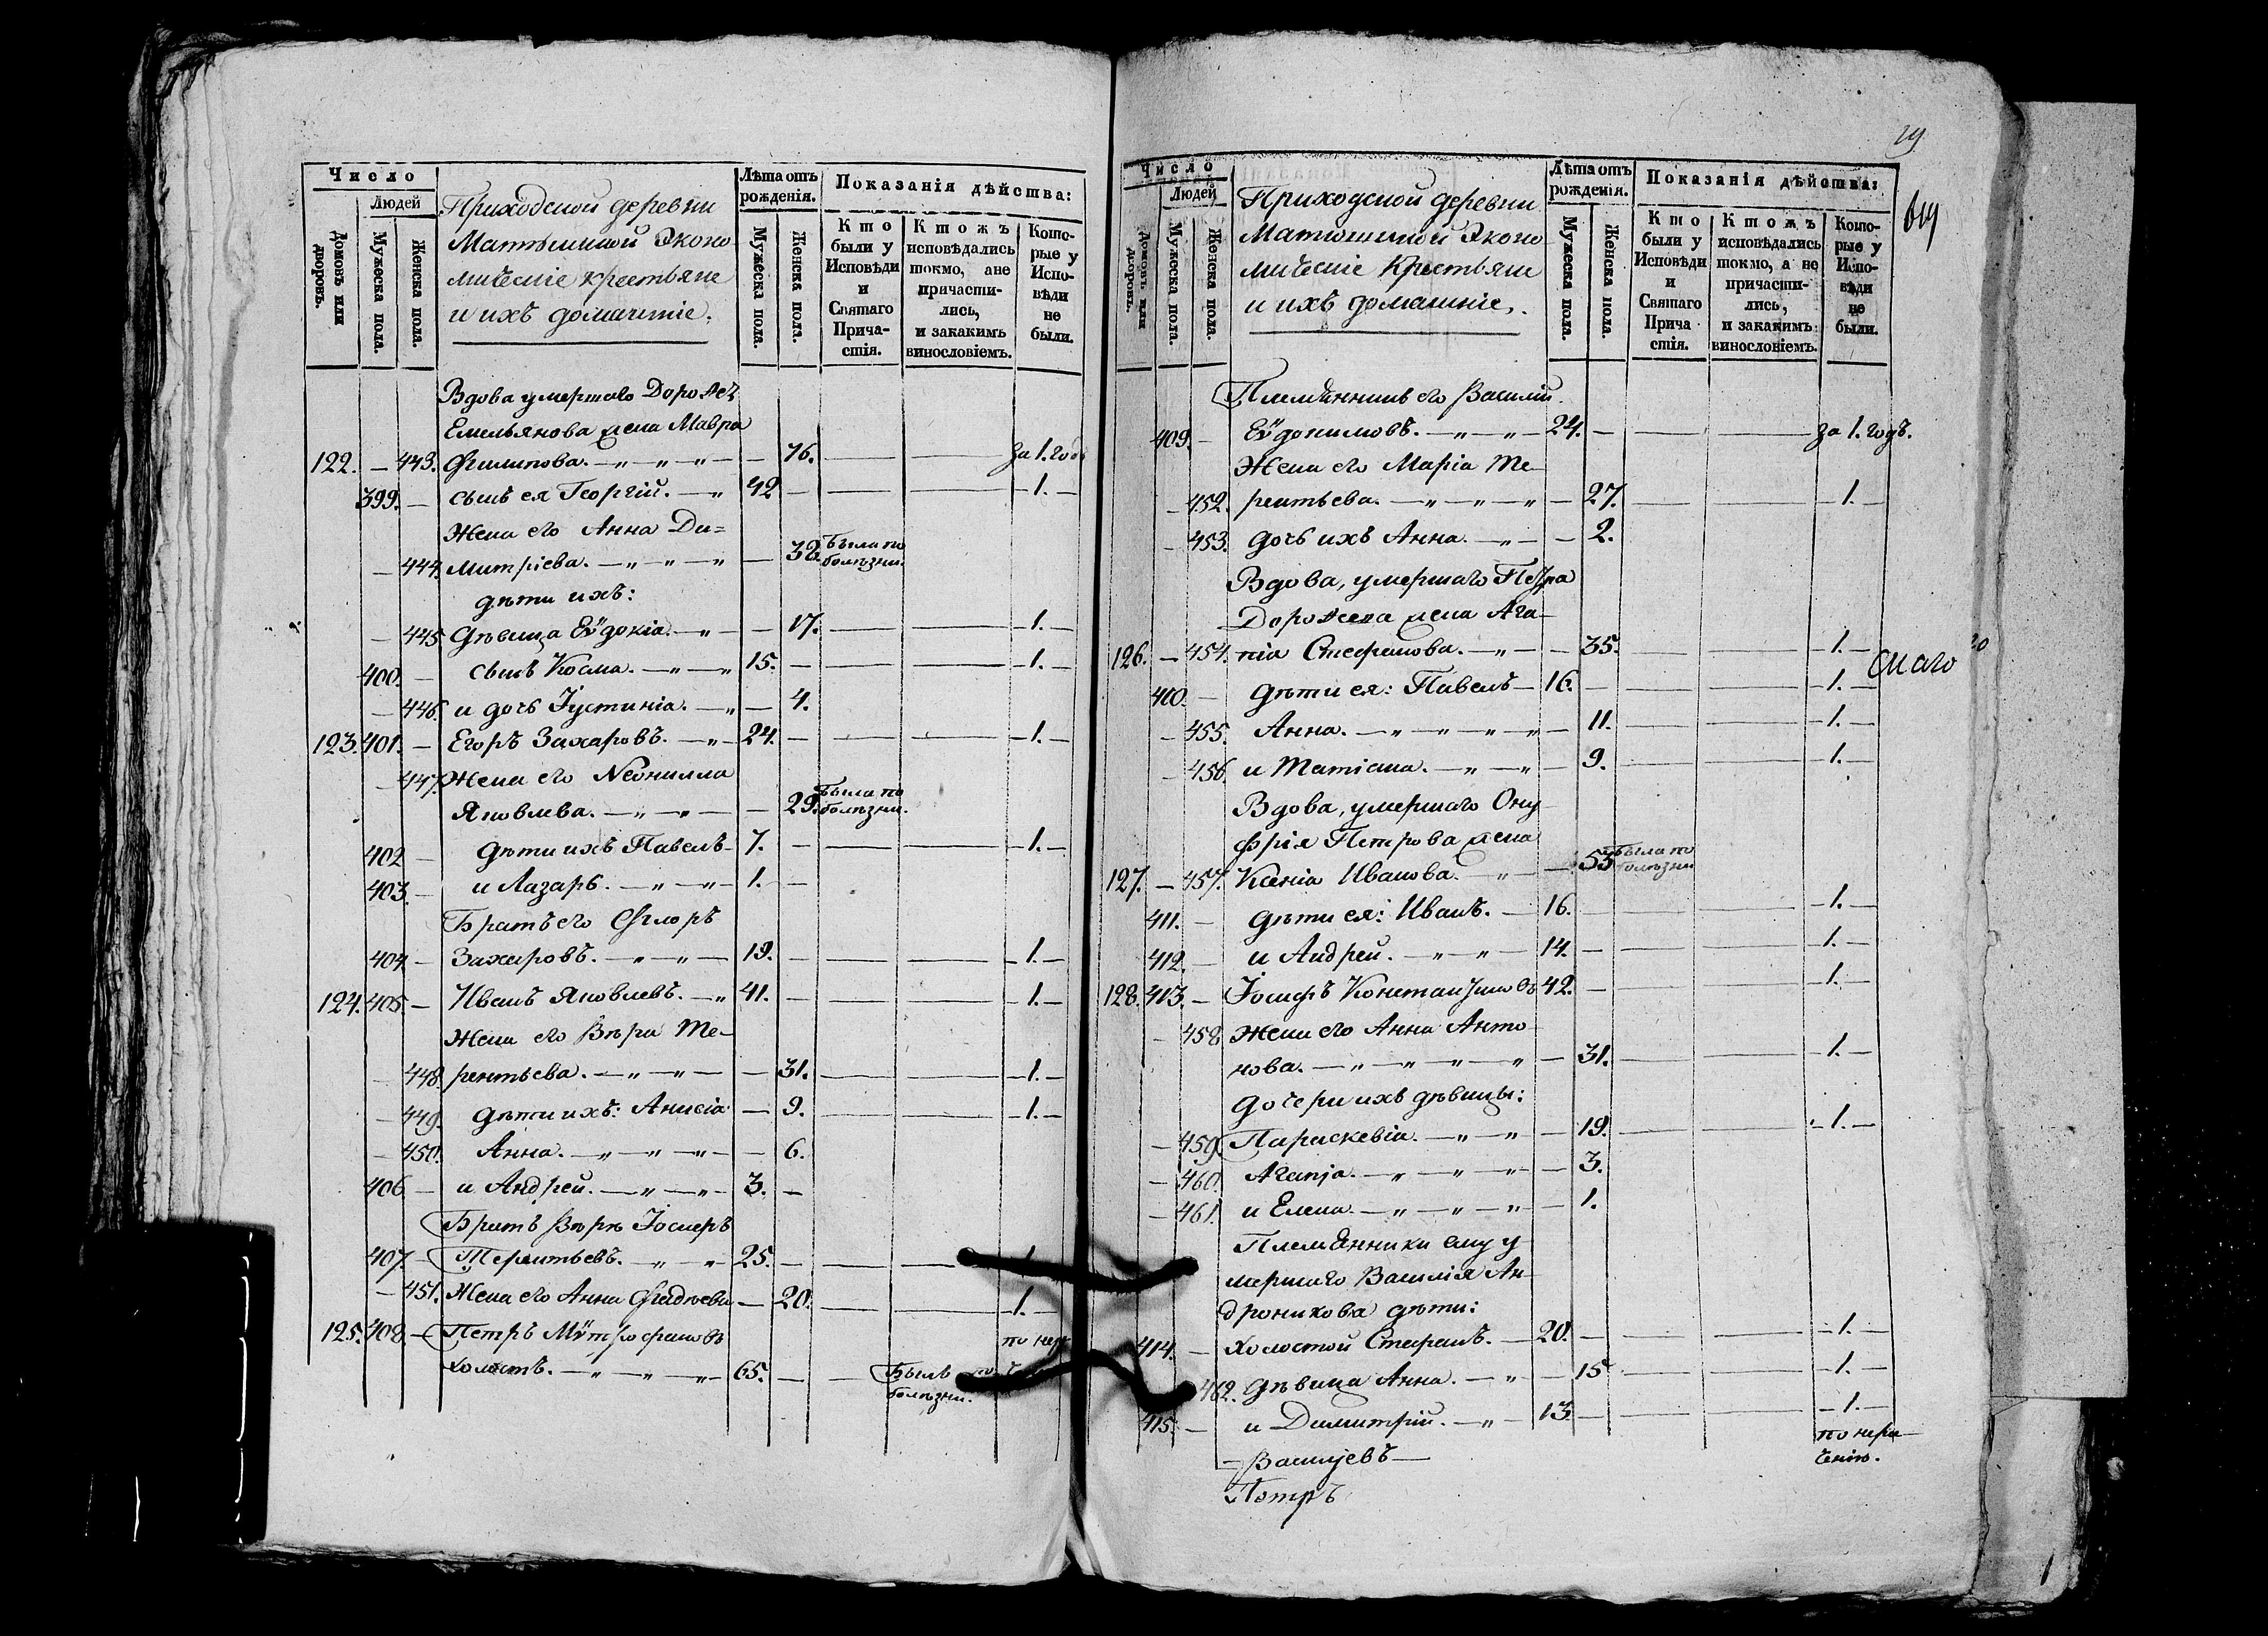 Число
Людей
Домовъ или дворовъ.
Мужеска пола.
Женска пола.
Приходской деревни
Экономическіе крестьяне
и ихъ домашніе.
Лѣта отъ рожденія.
Мужеска пола.
Женска пола.
Показанія дѣйства:
Кто были у Исповѣди и Святаго Причастія.
Ктожъ исповѣдались токмо, а не причастились, и закакимъ винословіемъ.
Которые у Исповѣди не были.
Вдова умершаго Дороѳея
Емельянова жена Мавра
122. — 443. Филипова. — „ — „ — „ — — 76. — — за 1. годъ
399. — сынъ ея Георгій. — „ 42 — — — 1. —
Жена его Анна Ди=
— 444. митріева. — „ — „ — „ — 38. Была по болѣзни.
дѣти ихъ:
— 445. дѣвица Еѵдокіа. — „ — — 17. — — 1. —
400. — сынъ Косма. — „ — „ 15. — — — 1. —
— 446. и дочь Іустиніа. — „ — 4.
123. 401. — Егоръ Захаровъ. — „ — 24. — — — 1. —
— 447. Жена его Неонилла
Яковлева. — „ — „ — — 29. Была по болѣзни.
402 — дѣти ихъ Павелъ — 7. — — — 1. —
403. — и Лазарь. — „ — „ — 1. —
Братъ его Флоръ
404. — Захаровъ. — „ — „ — 19. — — — 1. —
124. 405. — Иванъ Яковлевъ. — „ 41. — — — 1. —
Жена его Вѣра Те-
— 448. рентьева. — „ — „ — — 31. — — 1. —
— 449. дѣти ихъ: Анисіа — 9. — — 1. —
— 450. Анна. — „ — „ — „ — — 6.
406 — и Андрей. — „ — „ — 3. —
Братъ Вѣрѣ Іосифъ
407. — Терентьевъ. — „ — „ 25. — — — 1.
— 451. Жена его Анна Фадѣева — 20. — — 1. —
125. 408. — Петръ Мѵтрофановъ
холостъ. — „ — „ — „ — 65. — — Былъ по болѣзни.
29
Число
Людей
Домовъ или дворовъ.
Мужеска пола.
Женска пола.
Приходской деревни
Экономическіе крестьяне
и ихъ домашніе.
Лѣта отъ рожденія.
Мужеска пола.
Женска пола.
Показанія дѣйства:
Кто были у Исповѣди и Святаго Причастія.
Ктожъ исповѣдались токмо, а не причастились, и закакимъ винословіемъ.
Которые у Исповѣди не были.
Племянникъ его Василій
409. — Еѵдокимовъ. — „ — „ — 24. — — — за 1. годъ.
Жена его Маріа Те-
— 452. рентьева. — „ — „ — „ — 27. — — 1. —
— 453. дочь ихъ Анна. — „ — — 2.
Вдова, умершаго Петра
Дороѳеева жена Ага-
126. — 454. піа Стефанова. — „ — — 35. — — 1. —
410. — дѣти ея: Павелъ — 16. — — — 1. —
— 455. Анна. — „ — „ — „ — „ — 11. — — 1. —
— 456. и Татіана. — „ — „ — 9. — — 1. —
Вдова, умершаго Ону-
фрія Петрова жена
127. — 457. Ксеніа Иванова. — „ — — 55 Была по болѣзни
411. — дѣти ея: Иванъ. — 16. — — — 1. —
412. — и Андрей. — „ — „ — 14. — — — 1. —
128. 413. — Іосифъ Константиновъ 42. — — — 1. —
— 458 Жена его Анна Анто-
нова. — „ — „ — „ — „ — 31. — — 1. —
дочери ихъ дѣвицы:
— 459. Параскевіа. — „ — „ — — 19. — — 1. —
— 460. Агапіа. — „ — „ — „ — — 3.
— 461. и Елена. — „ — „ — „ — — 1.
Племянники ему у-
мершаго Василія Ан-
дроникова дѣти:
414. — холостой Стефанъ. — 20. — — — 1. —
462. дѣвица Анна. — „ — — 15 — — 1. —
415. — и Димитрій. — „ — 13. — — — 1. —
Петръ